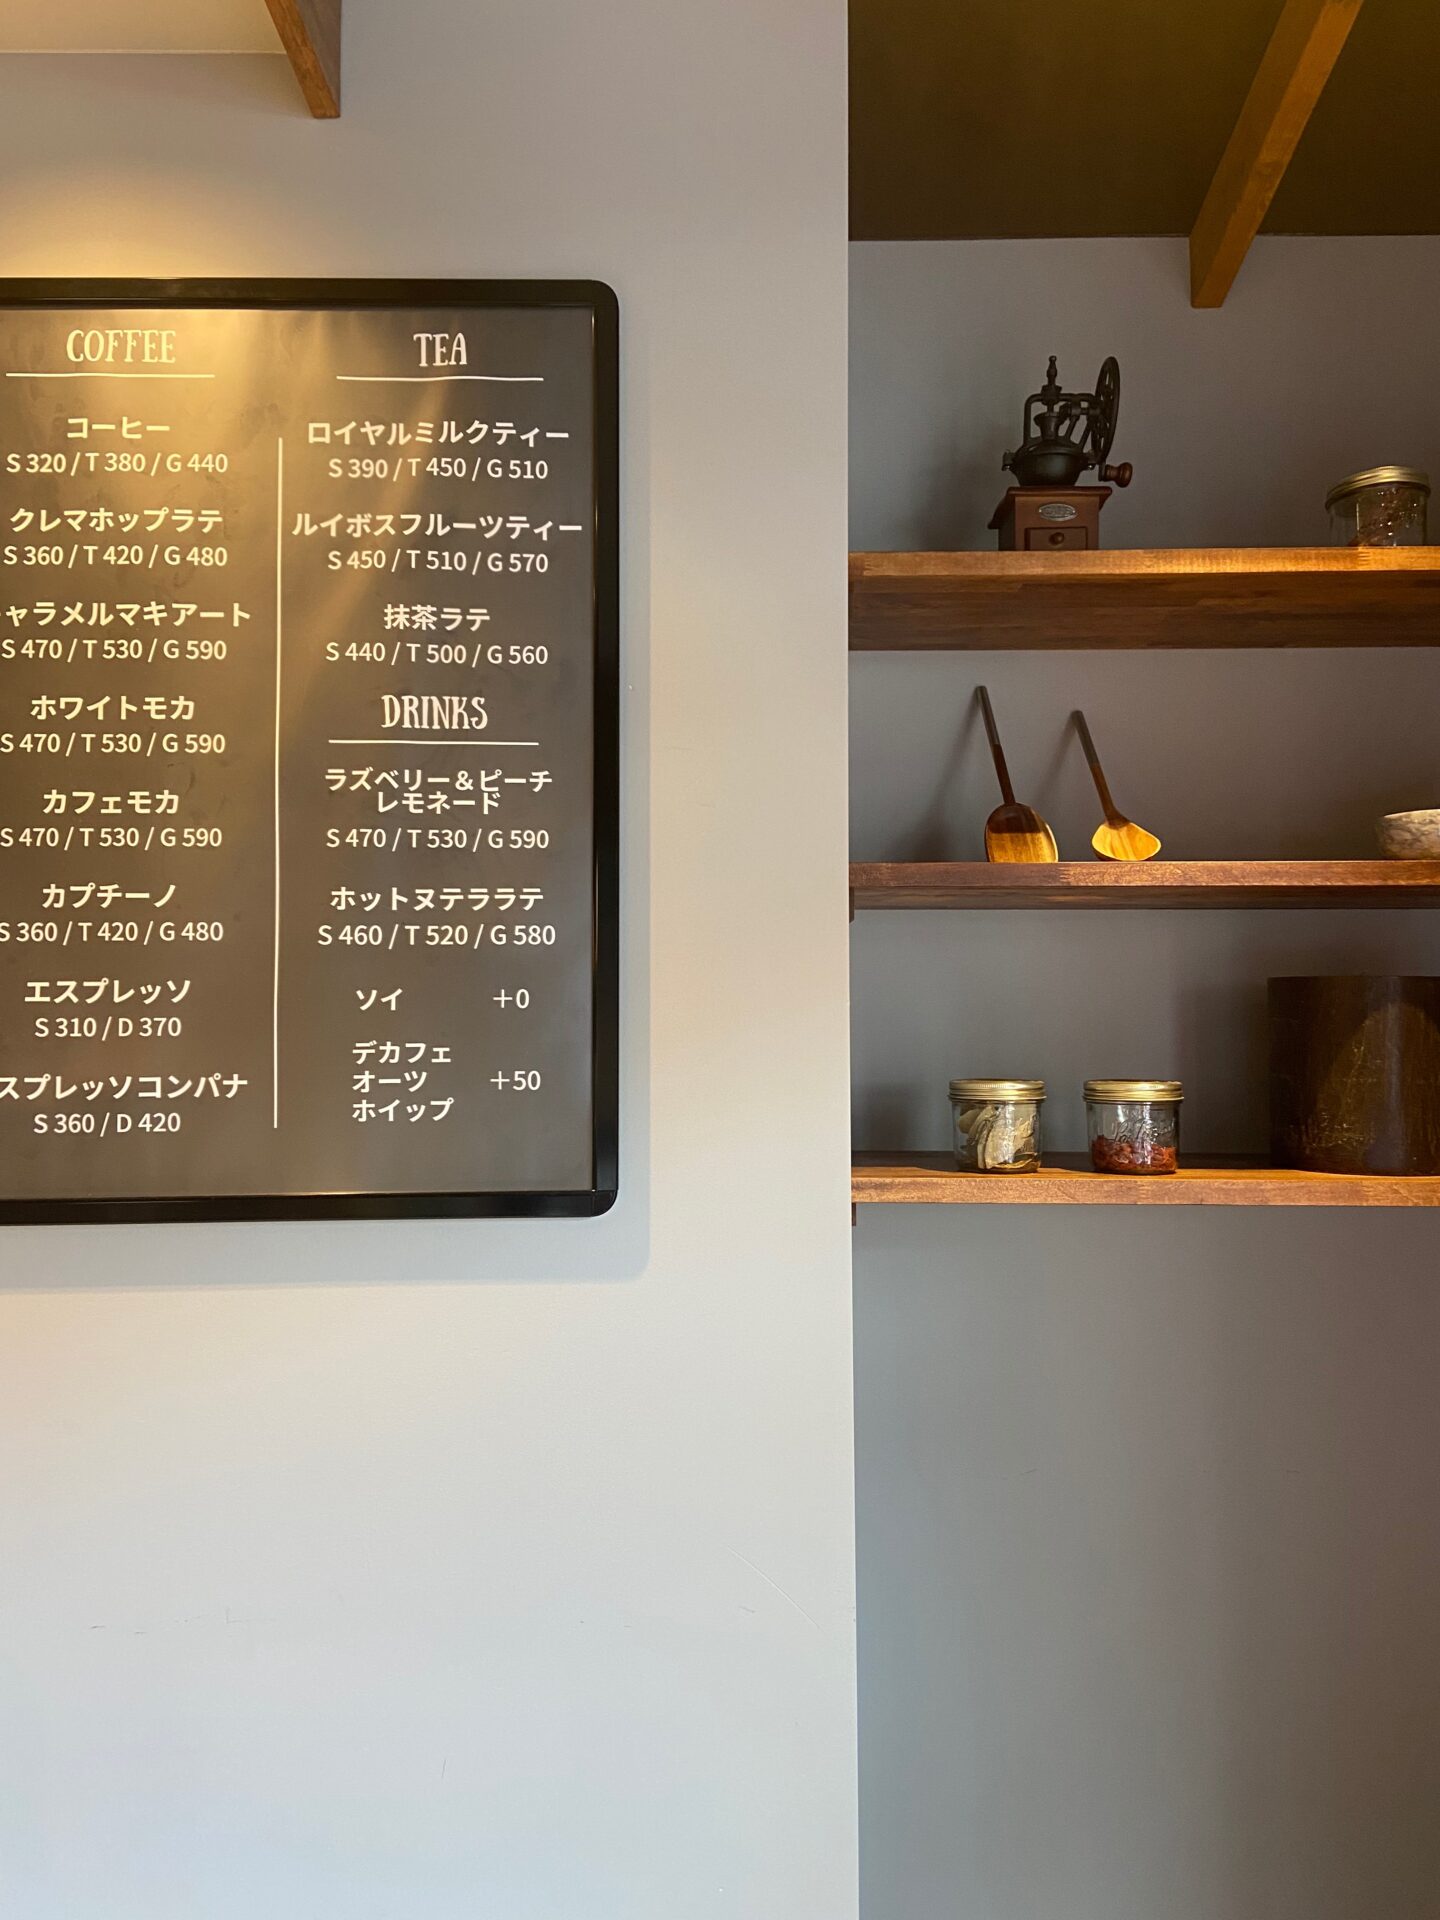 COFFEE
コーヒー
S 320 / T 380 / G 440
クレマホップラテ
S 360 / T 420 / G 480
ャラメルマキアート
S 470 / T 530 / G 590
ホワイトモカ
S 470 / T 530 / G 590
カフェモカ
S 470 / T 530 / G 590
カプチーノ
S 360 / T 420 / G 480
エスプレッソ
S 310 / D 370
スプレッソコンパナ
S 360 / D 420
TEA
ロイヤルミルクティー
S 390 / T 450 / G 510
ルイボスフルーツティー
S 450 / T 510 / G 570
抹茶ラテ
S 440 / T 500 / G 560
DRINKS
ラズベリー＆ピーチ
レモネード
S 470 / T 530 / G 590
ホットヌテララテ
S 460 / T 520 / G 580
ソイ +0
デカフェ
オーツ +50
ホイップ